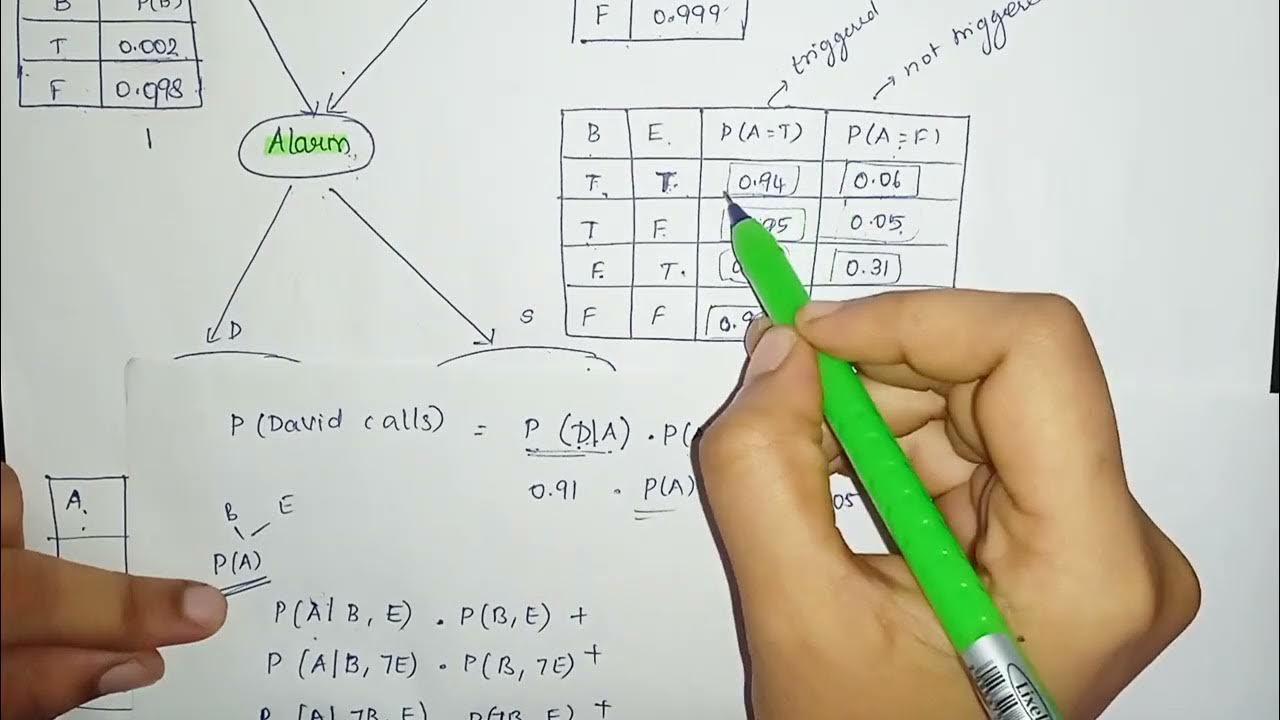 B P(B)
T 0.002
F 0.098
F 0.999
triggered
not triggered
Alarm
B E. P(A=T) P(A=F)
T. T. 0.94 0.06
T F. 0.05
F. T. 0.31
F F
D
S
P(David calls) = P(D|A) . P(
0.91 . P(A) 05
A.
B E
P(A)
P(A|B, E) . P(B,E) +
P(A|B, 7E) . P(B, 7E) +
P(A|7B, E) P(7B, E) +